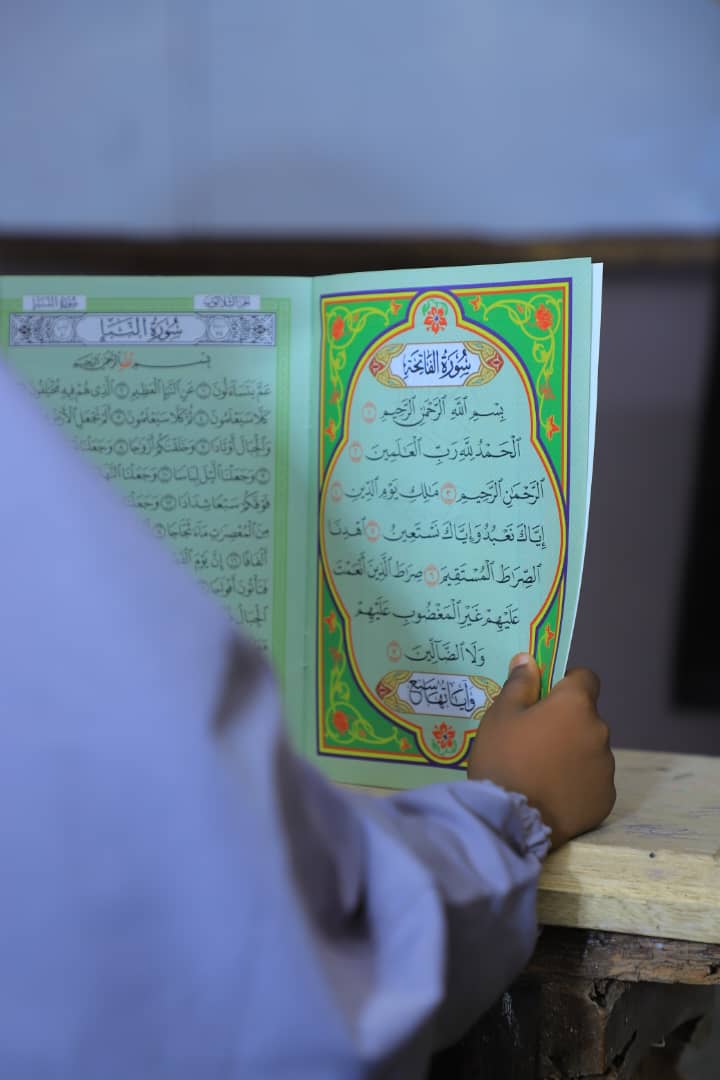 سُورَةُ الفَاتِحَةِ
بِسْمِ ٱللَّهِ ٱلرَّحْمَٰنِ ٱلرَّحِيمِ ١
ٱلْحَمْدُ لِلَّهِ رَبِّ ٱلْعَٰلَمِينَ ٢
ٱلرَّحْمَٰنِ ٱلرَّحِيمِ ٣ مَٰلِكِ يَوْمِ ٱلدِّينِ ٤
إِيَّاكَ نَعْبُدُ وَإِيَّاكَ نَسْتَعِينُ ٥ ٱهْدِنَا
ٱلصِّرَٰطَ ٱلْمُسْتَقِيمَ ٦ صِرَٰطَ ٱلَّذِينَ أَنْعَمْتَ
عَلَيْهِمْ غَيْرِ ٱلْمَغْضُوبِ عَلَيْهِمْ
وَلَا ٱلضَّآلِّينَ ٧
وَآيَاتُهَا سَبْعٌ
الجزء الثلاثون
سُورَةُ النَّبَإِ
سُورَةُ النَّبَإِ
بِسْمِ ٱللَّهِ ٱلرَّحْمَٰنِ ٱلرَّحِيمِ
عَمَّ يَتَسَآءَلُونَ ١ عَنِ ٱلنَّبَإِ ٱلْعَظِيمِ ٢ ٱلَّذِى هُمْ فِيهِ مُخْتَلِفُونَ
كَلَّا سَيَعْلَمُونَ ٤ ثُمَّ كَلَّا سَيَعْلَمُونَ ٥ أَلَمْ نَجْعَلِ ٱلْأَرْضَ
وَٱلْجِبَالَ أَوْتَادًا ٧ وَخَلَقْنَٰكُمْ أَزْوَٰجًا ٨ وَجَعَلْنَا
٩ وَجَعَلْنَا ٱلَّيْلَ لِبَاسًا ١٠ وَجَعَلْنَا ٱلنَّهَارَ
فَوْقَكُمْ سَبْعًا شِدَادًا ١٢ وَجَعَلْنَا
مِنَ ٱلْمُعْصِرَٰتِ مَآءً ثَجَّاجًا
أَلْفَافًا ١٦ إِنَّ يَوْمَ
فَتَأْتُونَ أَفْوَاجًا
ٱلْجِبَالُ